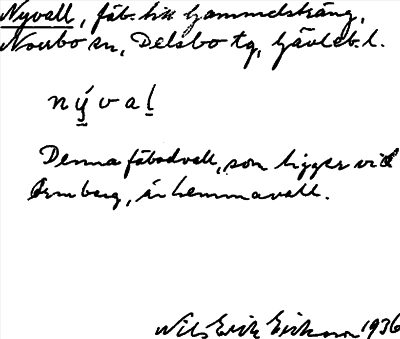 Nyvall, fäb. till Gammelsträng,
Norrbo sn, Delsbo tg, Gävleb. l.
nýval
Denna fäbodvall, som ligger vid
berg, är hemmavall.
Nils Erik Eriksson 1936